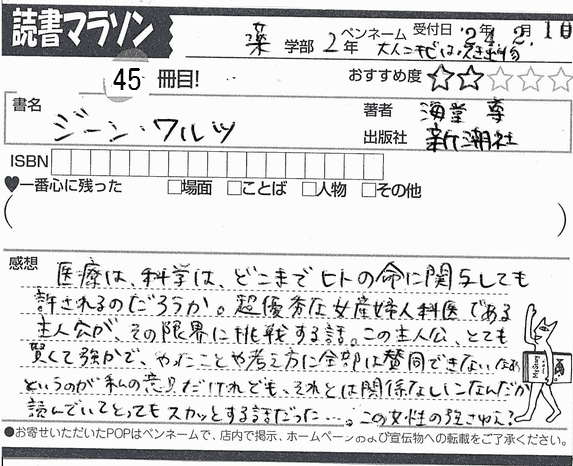 読書マラソン
薬 学部 2年 ペンネーム 受付日 年 2月 10
大人 ニキビは吹き出物
45 冊目!
おすすめ度 ★★☆☆☆
書名 ジーン・ワルツ
著者 海堂 尊
出版社 新潮社
ISBN
♥一番心に残った □場面 □ことば □人物 □その他
感想
医療は、科学は、どこまでヒトの命に関与しても
許されるのだろうか。超優秀な女産婦人科医である
主人公が、その限界に挑戦する話。この主人公、とても
賢くて強かで、やったことや考え方に全部は賛同できないなぁ
というのが私の意見だけれども、それとは関係なしになんだか
読んでいてとってもスカッとする話だった…。この女性の強さゆえ?
●お寄せいただいたPOPはペンネームで、店内で掲示、ホームページおよび宣伝物への転載をご了承ください。